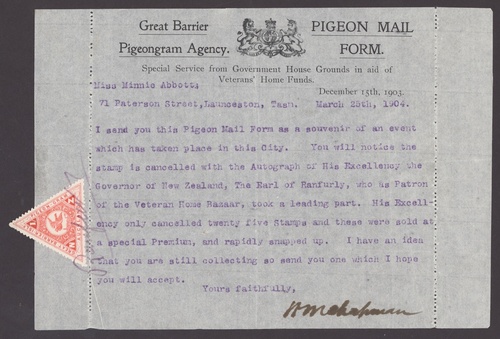 Great Barrier
Pigeongram Agency.
PIGEON MAIL
FORM.
Special Service from Government House Grounds in aid of
Veterans' Home Funds.
December 15th, 1903.
Miss Minnie Abbott;
71 Paterson Street, Launceston, Tasm. March 25th, 1904.
I send you this Pigeon Mail Form as a souvenir of an event
which has taken place in this City. You will notice the
stamp is cancelled with the Autograph of His Excellency the
Governor of New Zealand, The Earl of Ranfurly, who as Patron
of the Veteran Home Bazaar, took a leading part. His Excel-
ency only cancelled twenty five Stamps and these were sold at
a special Premium, and rapidly snapped up. I have an idea
that you are still collecting so send you one which I hope
you will accept.
Yours faithfully,